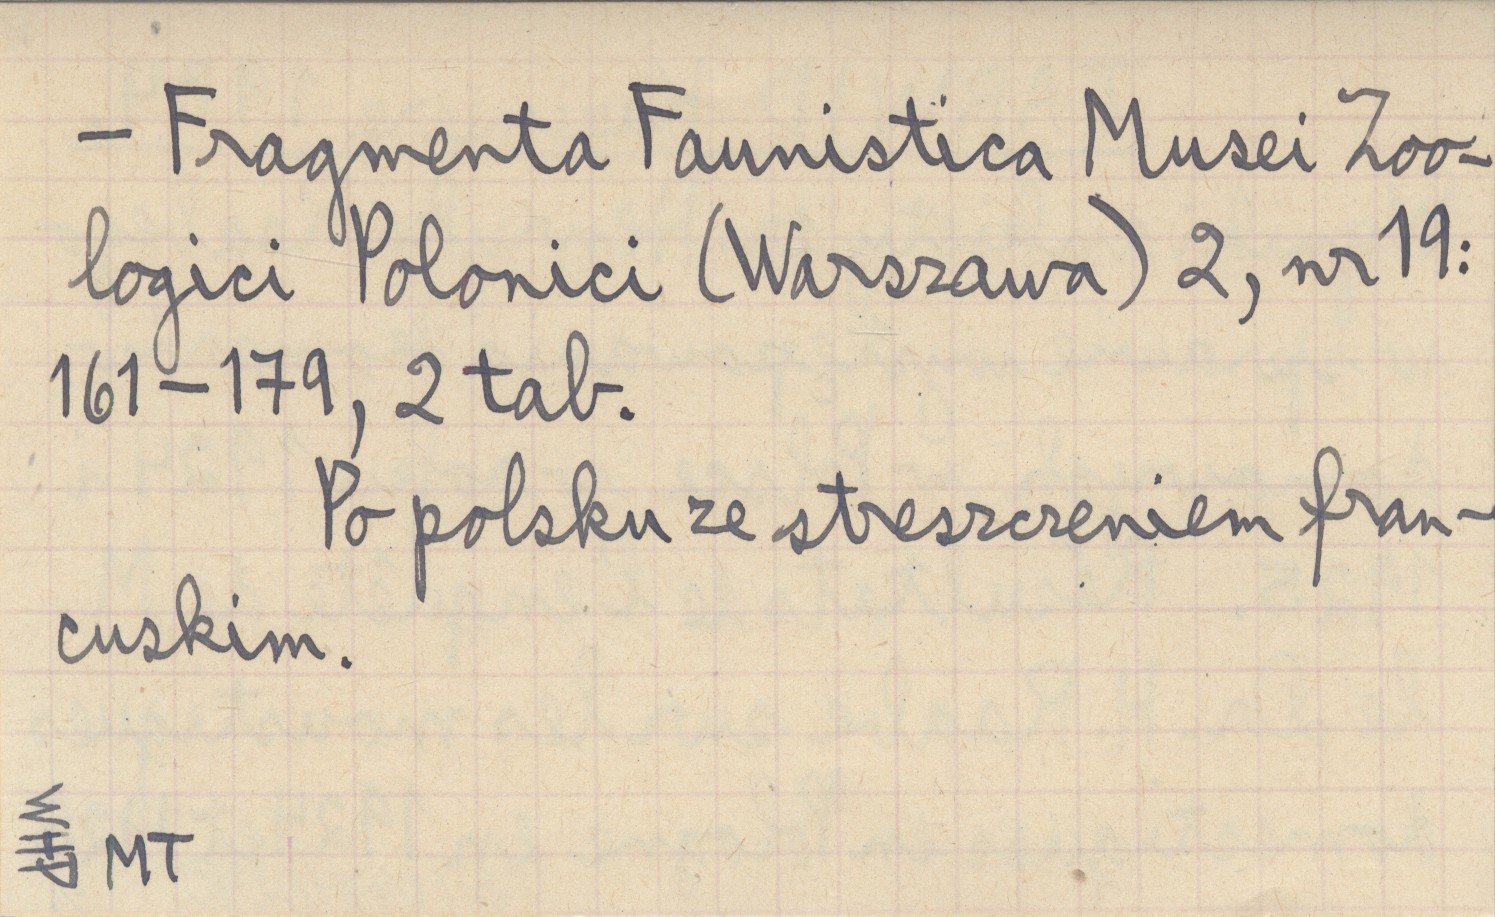 – Fragmenta Faunistica Musei Zoo-
logici Polonici (Warszawa) 2, nr 19:
161–179, 2 tab.
Po polsku ze streszczeniem fran-
cuskim.
MT